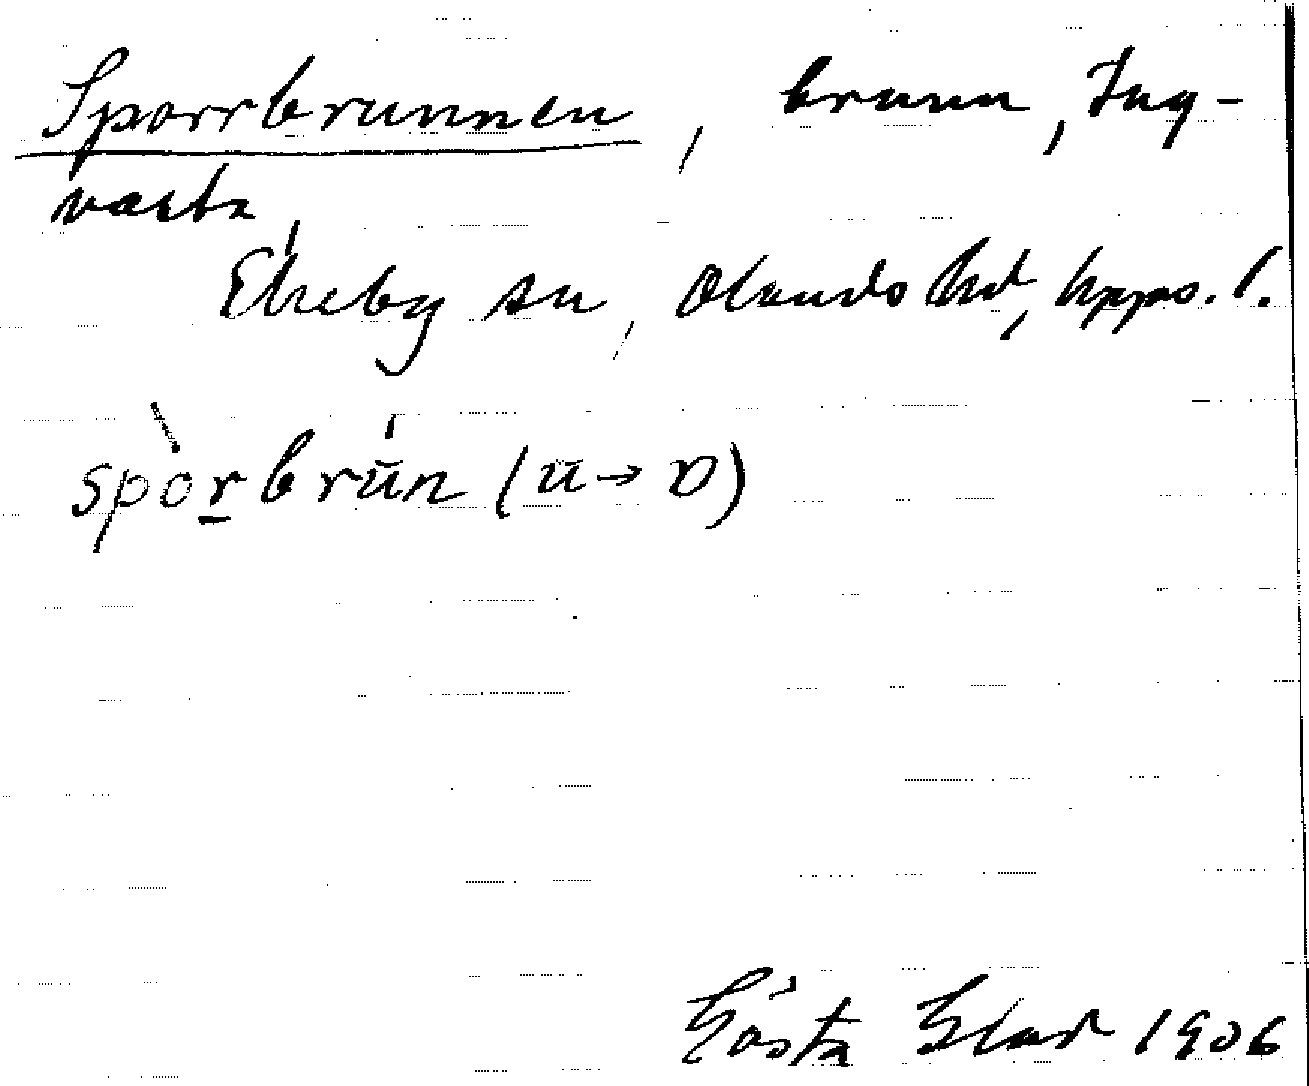 Sporrbrunnen, brunn, Ing-
varsta,
Ekeby sn, Olands hd, Upps. l.
spòrbrūn (ū→ʋ)
Gösta 1906